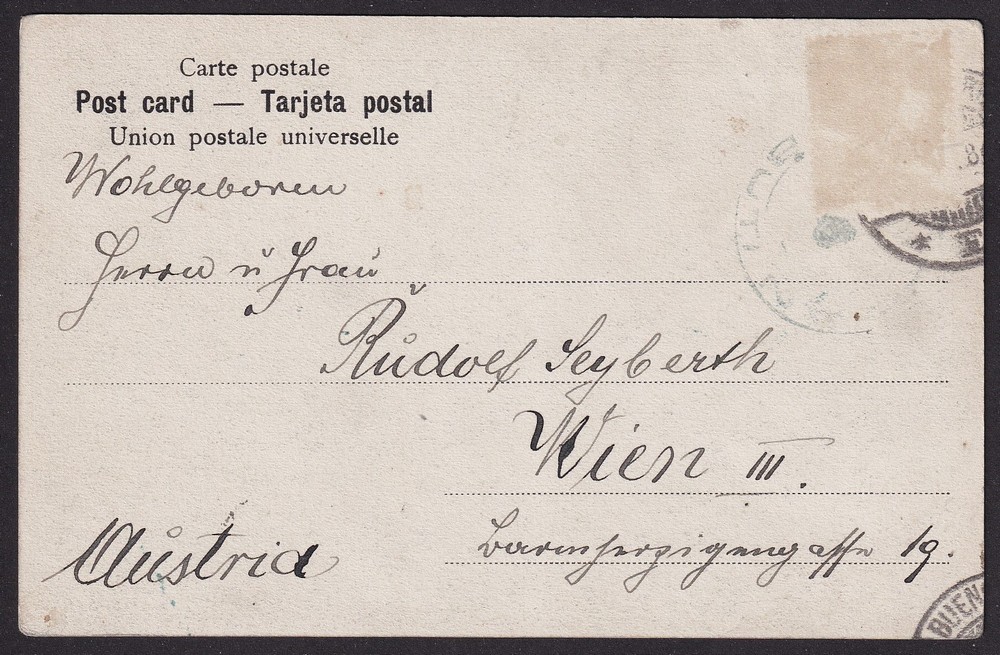 Carte postale
Post card — Tarjeta postal
Union postale universelle
Wohlgeboren
Herrn u Frau
Rudolf Seyberth
Wien III.
Barmherzigengasse 19.
Austria
BUEN